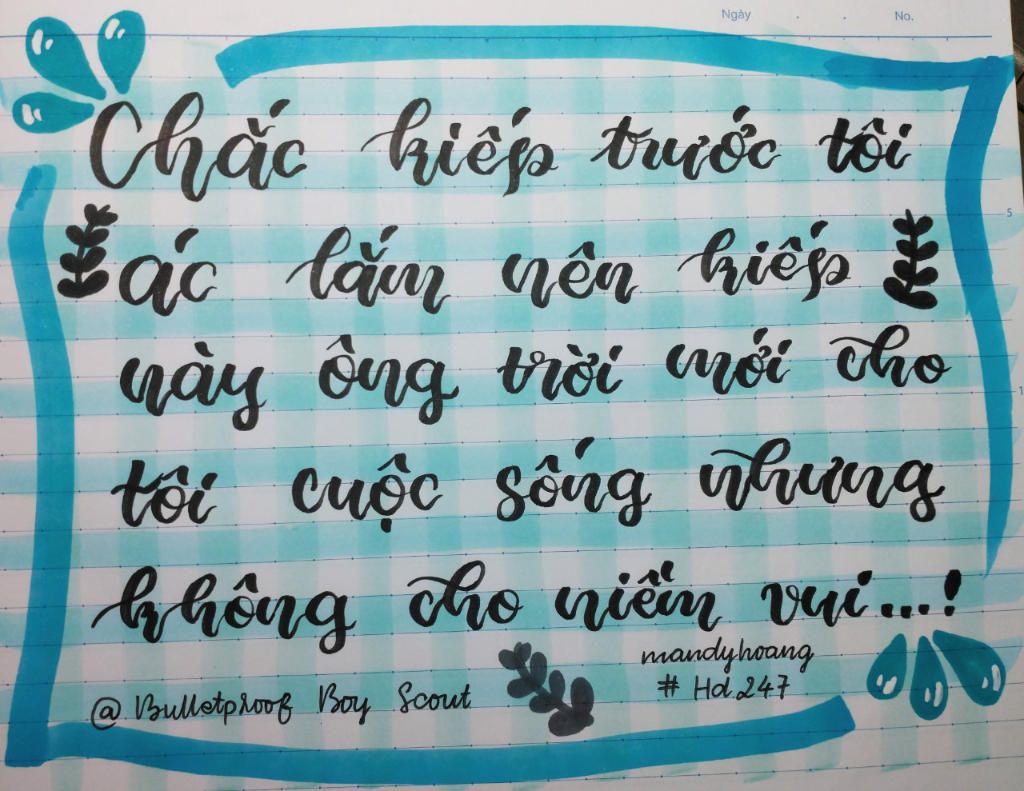 Ngày . . No.
Chắc kiếp trước tôi
5
ác lắm nên kiếp
này ông trời mới cho
1
tôi cuộc sống nhưng
không cho niềm vui...!
mandyhoang
@ Bulletproof Boy Scout
# Hd.247